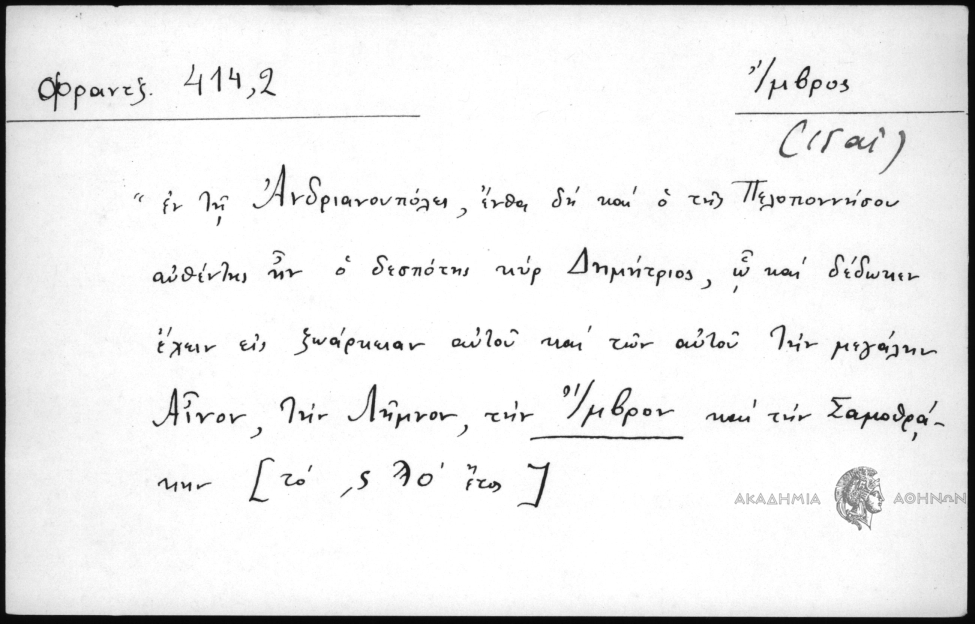 Φραντζ. 414,2
Ἴμβρος
(ιδαί)
"ἐν τῇ Ἀνδριανουπόλει, ἔνθα δή καί ὁ τῆς Πελοποννήσου
αὐθέντης ἦν ὁ δεσπότης κύρ Δημήτριος, ᾧ καί δέδωκεν
ἔχειν εἰς ζωάρκειαν αὐτοῦ καί τῶν αὐτοῦ τήν μεγάλην
Αἶνον, τήν Λῆμνον, τήν Ἴμβρον καί τήν Σαμοθρά-
κην [τό ͵ς λο' ἔτος]
ΑΚΑΔΗΜΙΑ ΑΘΗΝΩΝ